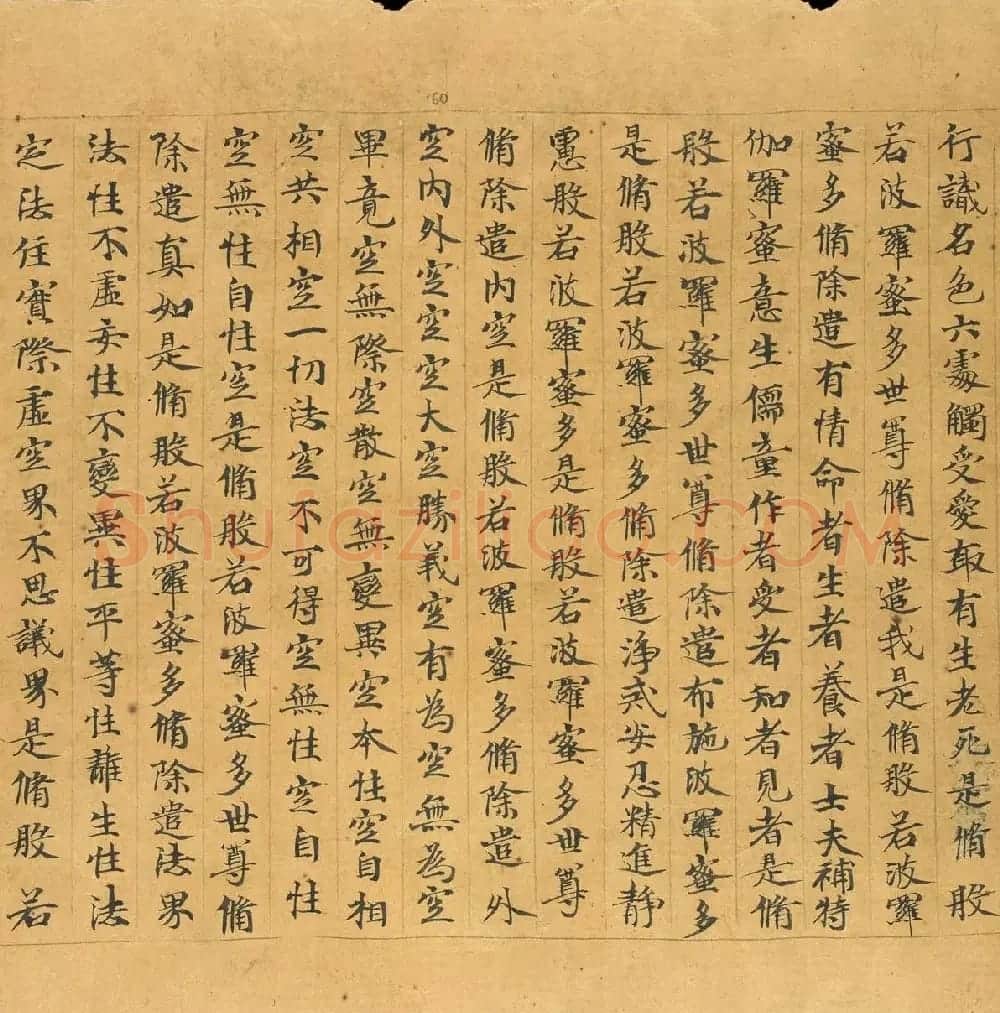 行識名色六處觸受愛取有生老死是脩般
若波羅蜜多世尊脩除遣我是脩般若波羅
蜜多脩除遣有情命者生者養者士夫補特
伽羅蜜意生儒童作者受者知者見者是脩
般若波羅蜜多世尊脩除遣布施波羅蜜多
是脩般若波羅蜜多脩除遣淨戒安忍精進靜
慮般若波羅蜜多是脩般若波羅蜜多世尊
脩除遣内空是脩般若波羅蜜多脩除遣外
空内外空空空大空勝義空有為空無為空
畢竟空無際空散空無變異空本性空自相
空共相空一切法空不可得空無性空自性
空無性自性空是脩般若波羅蜜多世尊脩
除遣真如是脩般若波羅蜜多脩除遣法界
法性不虛妄性不變異性平等性離生性法
定法住實際虛空界不思議界是脩般若
60
Shufaziliao.COM